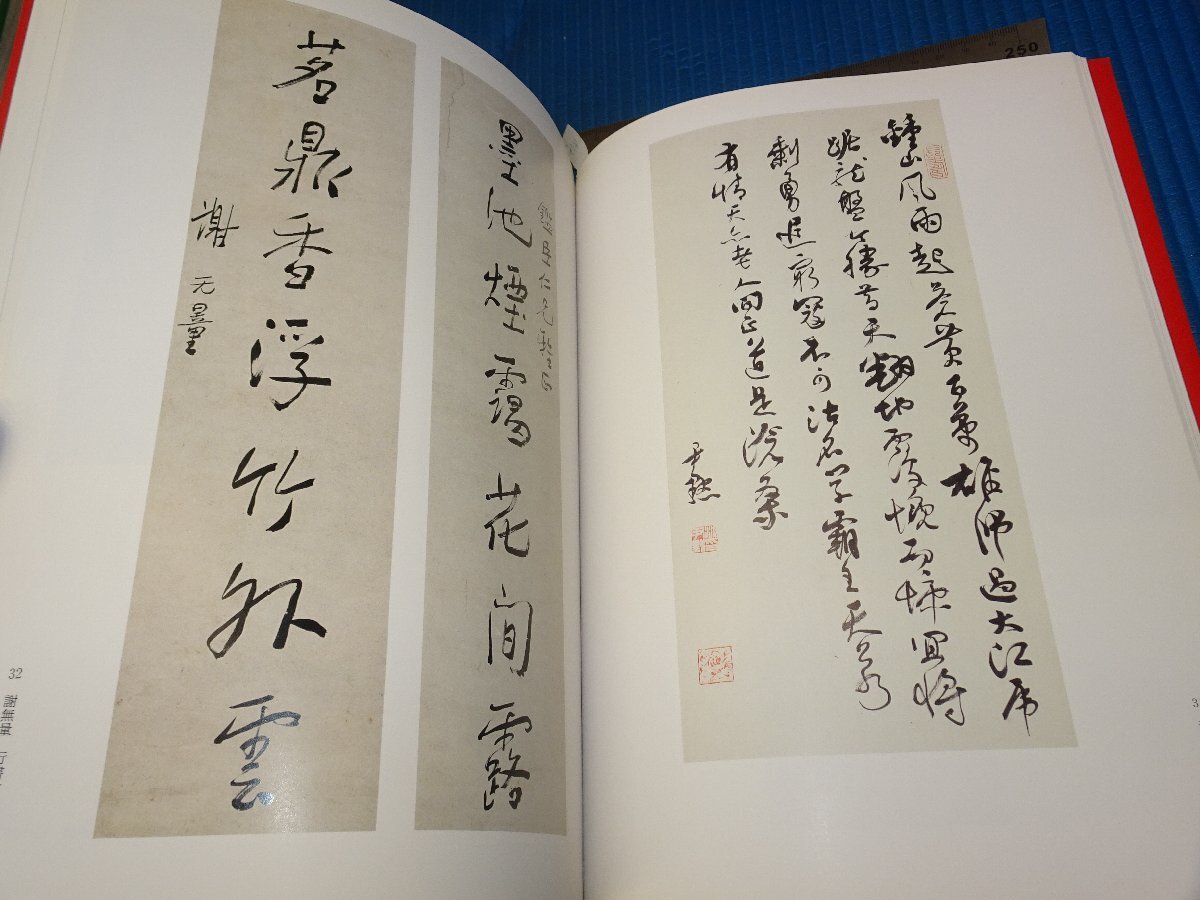 墨池煙靄花間露
茗鼎香浮竹外雲
謝无量
32 謝無量 行書
鍾山風雨起蒼黃百萬雄師過大江虎
踞龍盤今勝昔天翻地覆慨而慷宜將
剩勇追窮寇不可沽名學霸王天若
有情天亦老人間正道是滄桑
尹默
250